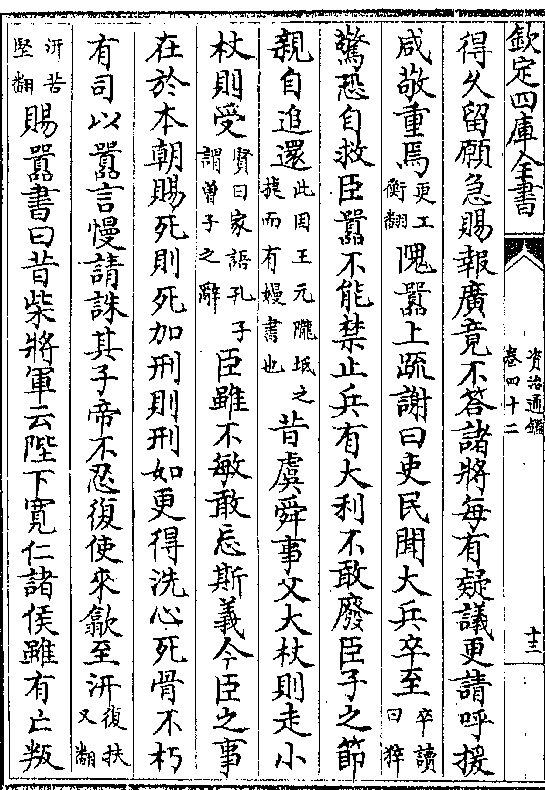 欽定四庫全書
資治通鑑
卷四十二
十三
得久留願急賜報廣竟不答諸將每有疑議更請呼援
咸敬重焉更工衡翻隗囂上疏謝曰吏民聞大兵卒至卒讀曰猝
驚恐自救臣囂不能禁止兵有大利不敢廢臣子之節
親自追還此因王元隴坻之捷而有嫚書也昔虞舜事父大杖則走小
杖則受賢曰家語孔子謂曾子之辭臣雖不敏敢忘斯義今臣之事
在於本朝賜死則死加刑則刑如更得洗心死骨不朽
有司以囂言慢請誅其子帝不忍復使來歙至汧復扶又翻
汧苦堅翻賜囂書曰昔柴將軍云陛下寛仁諸侯雖有亡叛